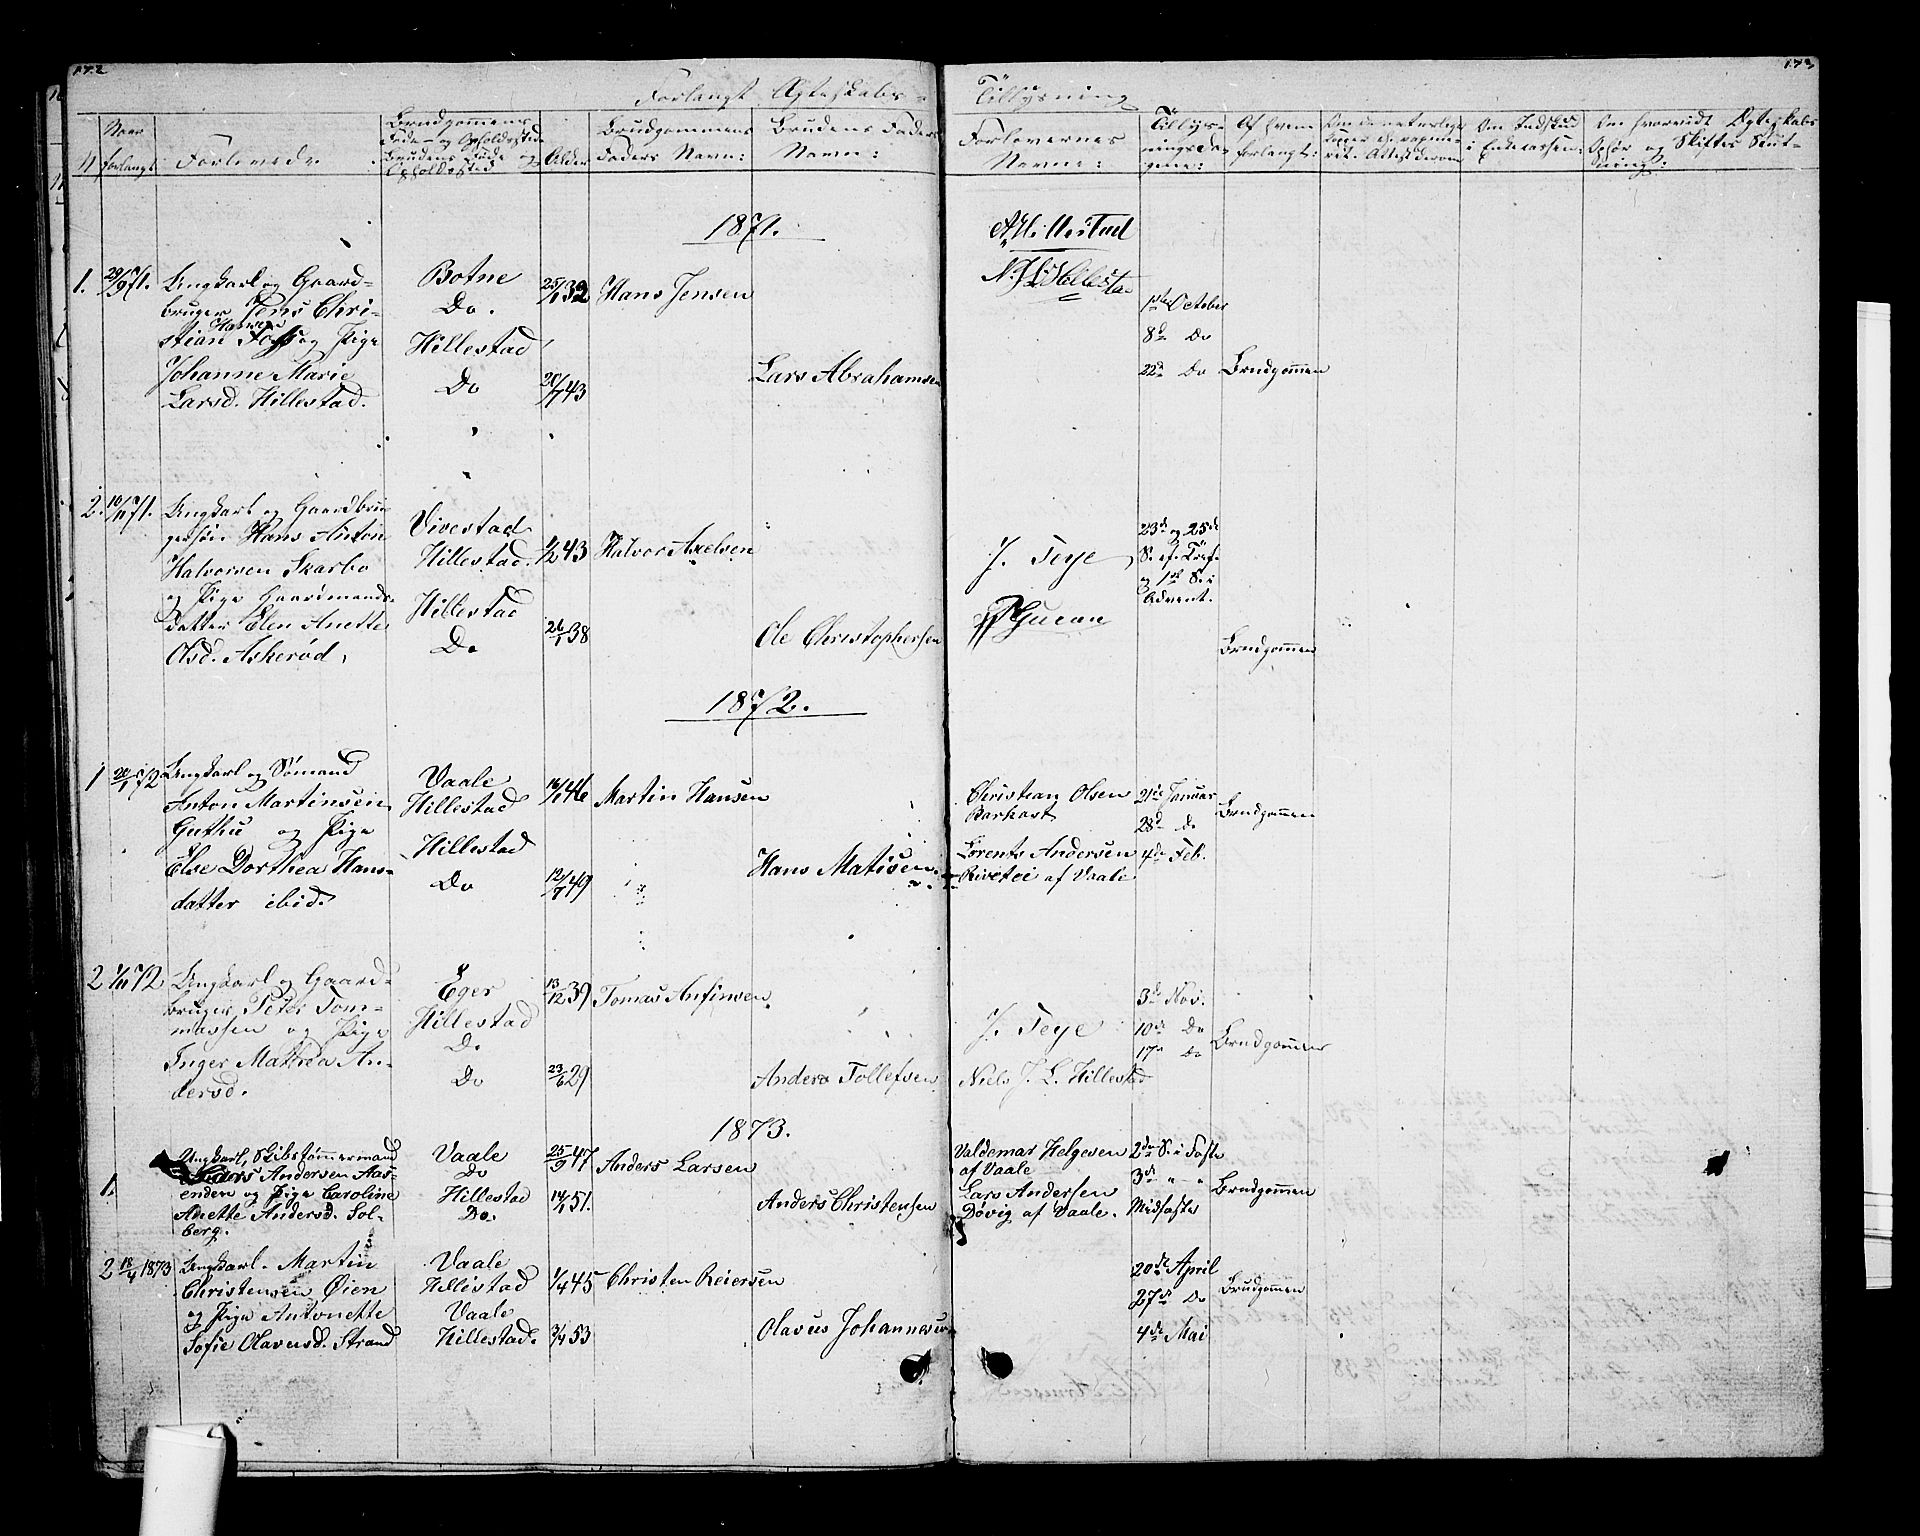 172
173
Forlangt Ægteskabs-
Tillysning
N
Naar forlangt:
Forlovede.
Brudgommens Føde- og Opholdssted
Brudens Føde og Opholdssted
Alder
Brudgommens Faders Navn:
Brudens Faders Navn:
Forlovernes Navne:
Tillysningsdagene:
Af hvem forlangt:
Om Indskud i Enkecassen:
Om forrige Ægteskabs Ophør og Skiftes Slutning:
1871.
1. 29/9 71.
Ungkarl og Gaard-
bruger Jens Chri-
stian Hansen
og Pige
Johanne Marie
Larsd. Hillestad.
Botne
Do.
Hillestad
Do
25/1 32
20/7 43
Hans Jensen
Lars Abrahamsen
A. Hillestad
N. J. L. Hillestad
1ste October
8de Do
22de Do
Brudgommen
2. 10/11 71.
Ungkarl og Gaardbru-
Hans Anton
Halvorsen Skarbo
og Pige Gaardmands-
datter Elen Anette
Olsd. Askerød,
Vivestad
Hillestad.
Hillestad
Do
43
26/1 38
Halvor Axelsen
Ole Christophersen
J. Teye
23de og 25de
S. ef. Tref.
og 1ste S. i
Advent.
Brudgommen
1872.
1 20/1 72
Ungkarl og Sømand
Anton Martinsen
Guthu og Pige
Else Dorthea Hans-
datter ibid.
Vaale
Hillestad
Hillestad
Do
16/1 46
12/7 49
Martin Hansen
Hans Matisen
Christian Olsen
Barkost
Lorents Andersen
af Vaale
21de Januar
28de do
4de Feb.
Brudgommen
2 1/11 72
Ungkarl og Gaard-
bruger Peter Tom-
massen og Pige
Inger Mathea An-
dersd.
Eger
Hillestad
Do
Do
13/12 39
23/6 29
Tomas Anfinsen
Anders Tollefsen
J. Teye
Niels J. L. Hillestad
3de Nov.
10de Do
17de Do
Brudgommen
1873.
1.
Ungkarl, Skibstømmermand
Anders Andersen Aas-
enden og Pige Caroline
Anette Andersd. Sol-
berg.
Vaale
Do
Hillestad
Do.
25/9 47
14/1 51.
Anders Larsen
Anders Christensen
Valdemar Helgesen
af Vaale
Lars Andersen
Døvig af Vaale.
2den S. i Faste
3de " - "
Midfaste
Brudgommen
2 18/4 1873
Ungkarl. Martin
Christensen Øien
og Pige Antonette
Sofie Olavusd. Strand
Vaale
Hillestad
Vaale
Hillestad.
1/4 45
3/4 53
Christen Reiersen
Olavus Johannesen
20de April
27de Do
4de Mai
Brudgommen